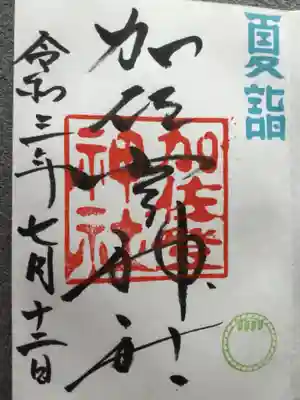 夏詣
加佐登神社
加佐登
神社
令和三年七月十三日